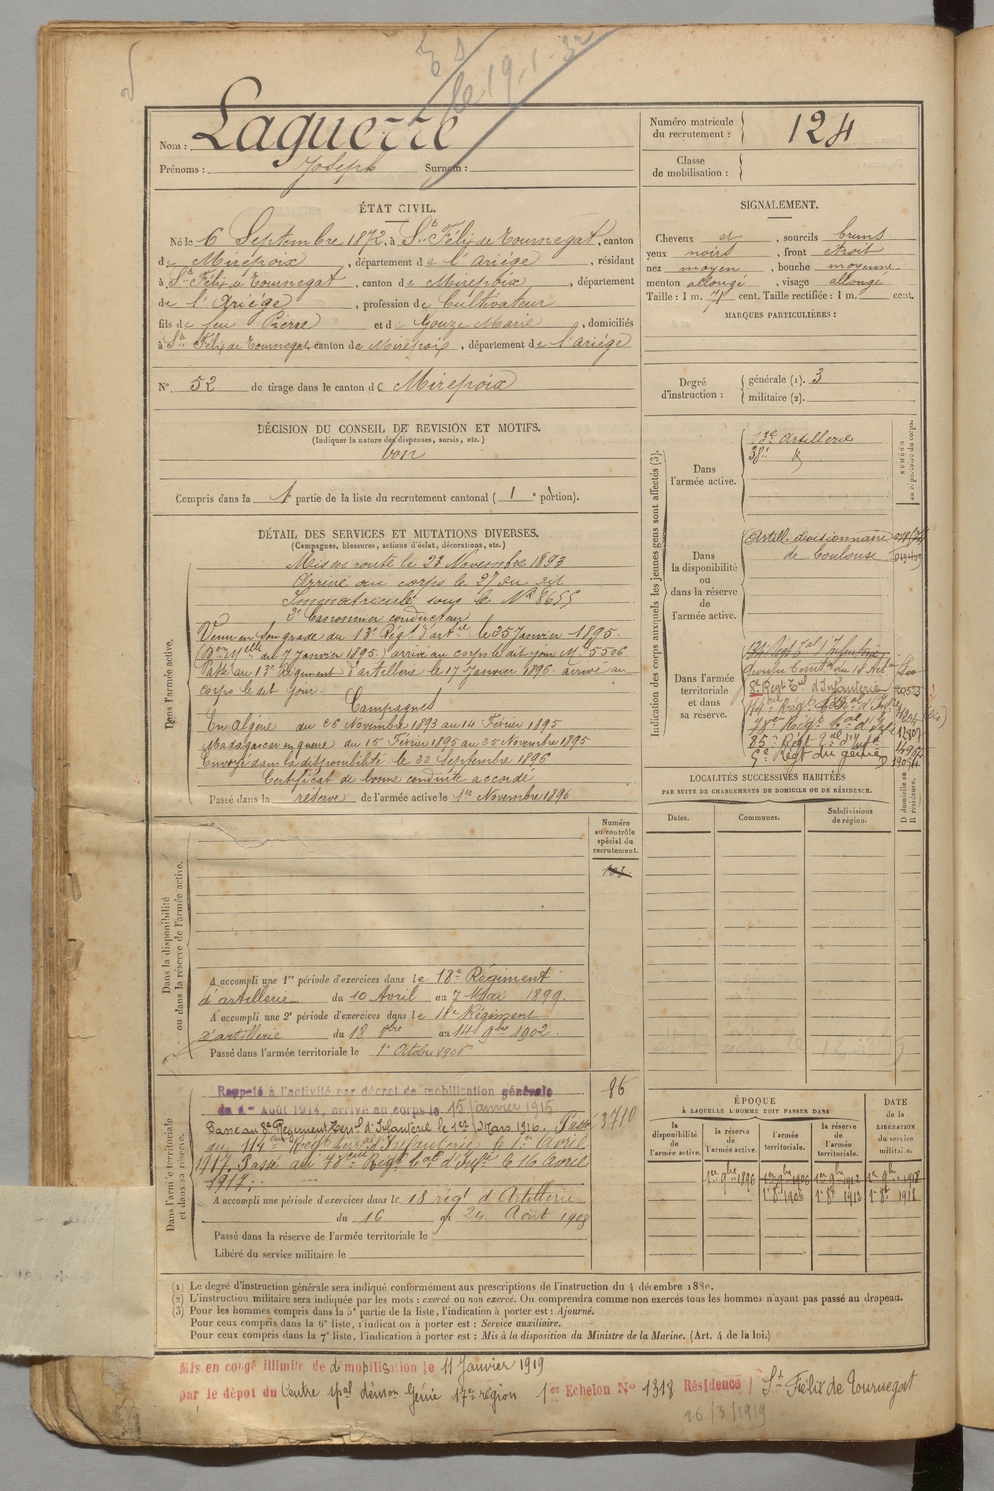 le 19.1.32
Nom : Laguerre
Prénoms : Joseph Surnom :
Numéro matricule du recrutement : 124
Classe de mobilisation :
ÉTAT CIVIL.
Né le 6 Septembre 1872, à St Félix de Tournegat, canton
de Mirepoix, département de l'Ariége, résidant
à St Félix de Tournegat, canton de Mirepoix, département
de l'Ariége, profession de Cultivateur
fils de feu Pierre et de Gouze Marie, domiciliés
à St Félix de Tournegat, canton de Mirepoix, département de l'Ariége
N° 52 de tirage dans le canton de Mirepoix
SIGNALEMENT.
Cheveux et, sourcils bruns
yeux noirs, front étroit
nez moyen, bouche moyenne
menton allongé, visage allongé
Taille : 1 m. 71 cent. Taille rectifiée : 1 m. cent.
MARQUES PARTICULIÈRES :
Degré d'instruction : générale (1). 3
militaire (2).
DÉCISION DU CONSEIL DE REVISION ET MOTIFS.
(Indiquer la nature des dispenses, sursis, etc.)
bon
Compris dans la 1e partie de la liste du recrutement cantonal ( 1 e portion).
DÉTAIL DES SERVICES ET MUTATIONS DIVERSES.
(Campagnes, blessures, actions d'éclat, décorations, etc.)
Dans l'armée active.
Mis en route le 23 Novembre 1893
Arrivé au corps le 27 du dit
Immatriculé sous le N° 8655
2e Canonnier conducteur
Venu en son grade du 13e Régt d'artie le 25 Janvier 1895.
du 7 Janvier 1895) arrivé au corps le dit jour Mle 5506
Passé au 13e Régiment d'artillerie le 17 Janvier 1896 arrivé au
corps le dit jour.
Campagnes
En Algérie du 26 Novembre 1893 au 14 Février 1895
Madagascar en guerre du 15 Février 1895 au 25 Novembre 1895
Envoyé dans la disponibilité le 22 Septembre 1896
Certificat de bonne conduite accordé
Passé dans la réserve de l'armée active le 1er Novembre 1896
Indication des corps auxquels les jeunes gens sont affectés (3).
NUMÉRO au répertoire du corps.
Dans l'armée active.
13e Artillerie
38e d
Dans la disponibilité ou dans la réserve de l'armée active.
Artill. divisionnaire
de Toulouse
Dans l'armée territoriale et dans sa réserve.
8e Régt Tal d'Infanterie
114e Régt Tal d'Infie
78e Régt Tal d'Infie
85e Régt Tal d'Infie
Régt du génie
LOCALITÉS SUCCESSIVES HABITÉES
PAR SUITE DE CHANGEMENTS DE DOMICILE OU DE RÉSIDENCE.
D domicile ou R résidence.
Dates. Communes. Subdivisions de région.
Numéro au contrôle spécial du recrutement.
Dans la disponibilité ou dans la réserve de l'armée active.
A accompli une 1re période d'exercices dans le 18e Régiment
d'artillerie du 10 Avril au 7 Mai 1899.
A accompli une 2e période d'exercices dans le 18e Régiment
d'artillerie du 18 8bre au 14 9bre 1902.
Passé dans l'armée territoriale le 1er Octobre 1906
Dans l'armée territoriale et dans sa réserve.
Rappelé à l'activité par décret de mobilisation générale
du 1er Août 1914, arrivé au corps le 15 janvier 1915
86
3710
Passé au 8e Régiment Terrl d'Infanterie le 1er Mars 1916. Passé
au 114eme Régt terral d'Infanterie le 1er Avril
1917. Passé au 78eme Régt Tal d'Infie le 16 Avril
1917.
A accompli une période d'exercices dans le 18 régt d'Artillerie
du 16 au 24 Août 1908
Passé dans la réserve de l'armée territoriale le
Libéré du service militaire le
ÉPOQUE
À LAQUELLE L'HOMME DOIT PASSER DANS
la disponibilité de l'armée active. la réserve de l'armée active. l'armée territoriale. la réserve de l'armée territoriale.
DATE de la LIBÉRATION du service militaire.
1er 9bre 1896 1er 9bre 1906 1er 9bre 1912 1er 9bre 1918
1er 8e 1906 1er 8e 1912 1er 8e 1918
(1) Le degré d'instruction générale sera indiqué conformément aux prescriptions de l'instruction du 4 décembre 1889.
(2) L'instruction militaire sera indiquée par les mots : exercé ou non exercé. On comprendra comme non exercés tous les hommes n'ayant pas passé au drapeau.
(3) Pour les hommes compris dans la 5e partie de la liste, l'indication à porter est : Ajourné.
Pour ceux compris dans la 6e liste, l'indication à porter est : Service auxiliaire.
Pour ceux compris dans la 7e liste, l'indication à porter est : Mis à la disposition du Ministre de la Marine. (Art. 4 de la loi.)
Mis en congé illimité de démobilisation le 11 Janvier 1919
par le dépôt du Centre spal démon Génie 17e région 1er Echelon N° 1318 Résidence St Félix de Tournegat
26/3/1919